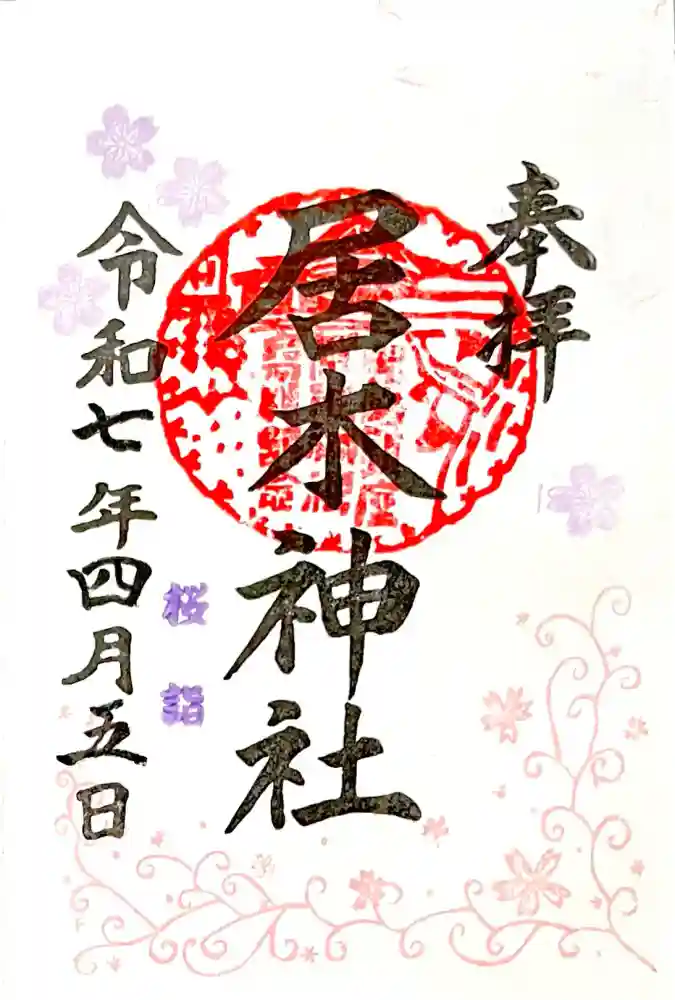 奉拝
居木神社
令和七年四月五日
桜詣